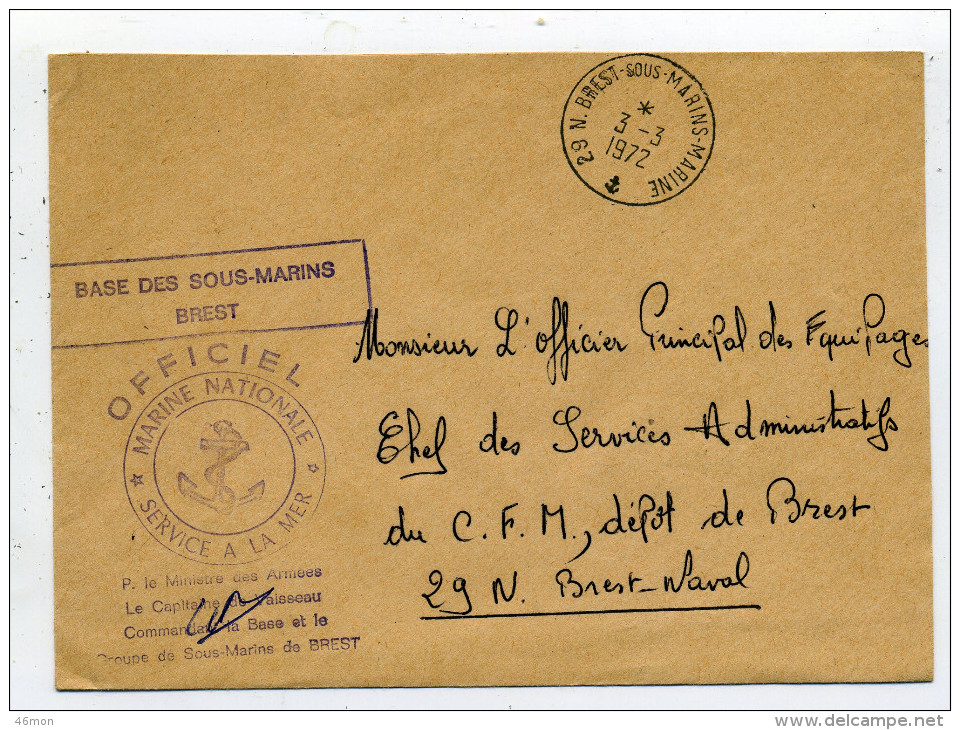 29 N. BREST-SOUS-MARINS-MARINE
3 - 3
1972
BASE DES SOUS-MARINS
BREST
OFFICIEL
MARINE NATIONALE
SERVICE A LA MER
P. le Ministre des Armées
Le Capitaine de Vaisseau
Commandant la Base et le
Groupe de Sous-Marins de BREST
Monsieur L'officier Principal des Equipages
Chef des Services Administratifs
du C.F.M., dépôt de Brest
29 N. Brest-Naval
46mon
www.delcampe.net